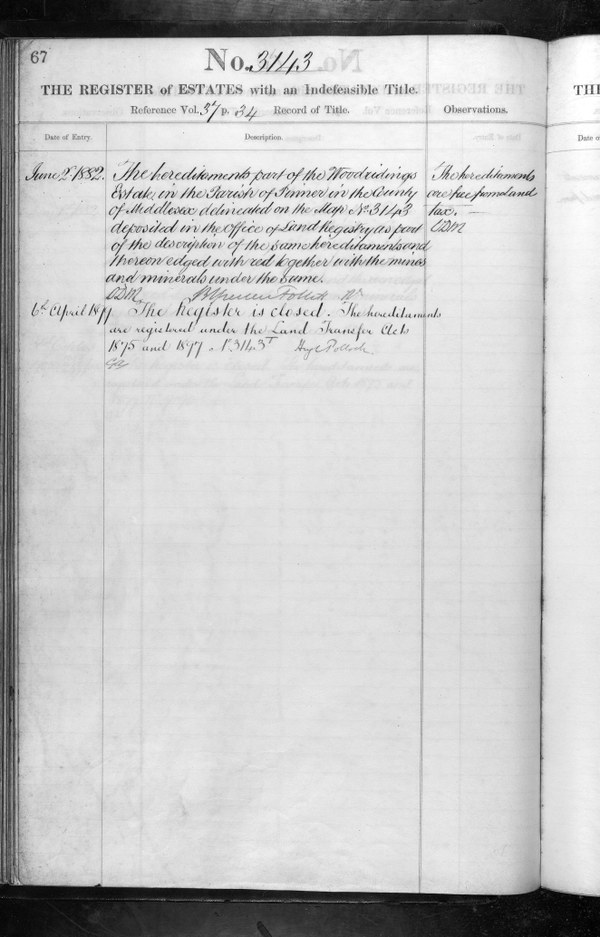 67
No. 3143
THE REGISTER of ESTATES with an Indefeasible Title.
Reference Vol. 37 p. 34 Record of Title. Observations.
Date of Entry. Description.
June 2 1882. The hereditaments part of the Woodridings
Estate, in the Parish of Pinner in the County
of Middlesex, delineated on the Map No 3143
deposited in the Office of Land Registry as part
of the description of the same hereditaments and
thereon edged with red together with the mines
and minerals under the same.
The hereditaments
are free from land
tax.
6th April 18 The Register is closed. The hereditaments
are registered under the Land Transfer Acts
1875 and 1897
Pollock
THE
Date o